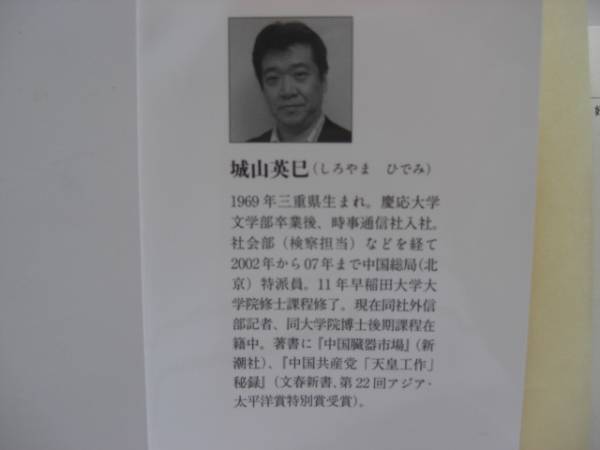 城山英巳(しろやま ひでみ)
1969年三重県生まれ。慶応大学
文学部卒業後、時事通信社入社。
社会部(検察担当)などを経て
2002年から07年まで中国総局(北
京)特派員。11年早稲田大学大
学院修士課程修了。現在同社外信
部記者、同大学院博士後期課程在
籍中。著書に『中国臓器市場』(新
潮社)、『中国共産党「天皇工作」
秘録』(文春新書、第22回アジア・
太平洋賞特別賞受賞)。